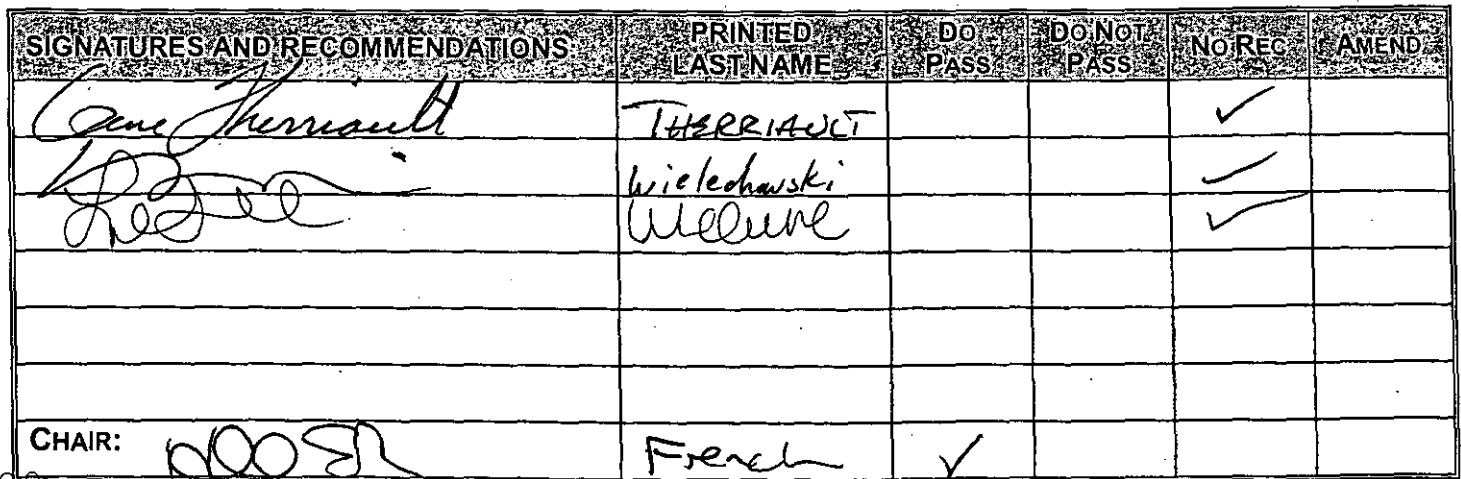 SIGNATURES AND RECOMMENDATIONS PRINTED LAST NAME DO PASS DO NOT PASS NO REC AMEND
Gene Therriault THERRIAULT ✓
Wielechowski ✓
✓
CHAIR: French ✓